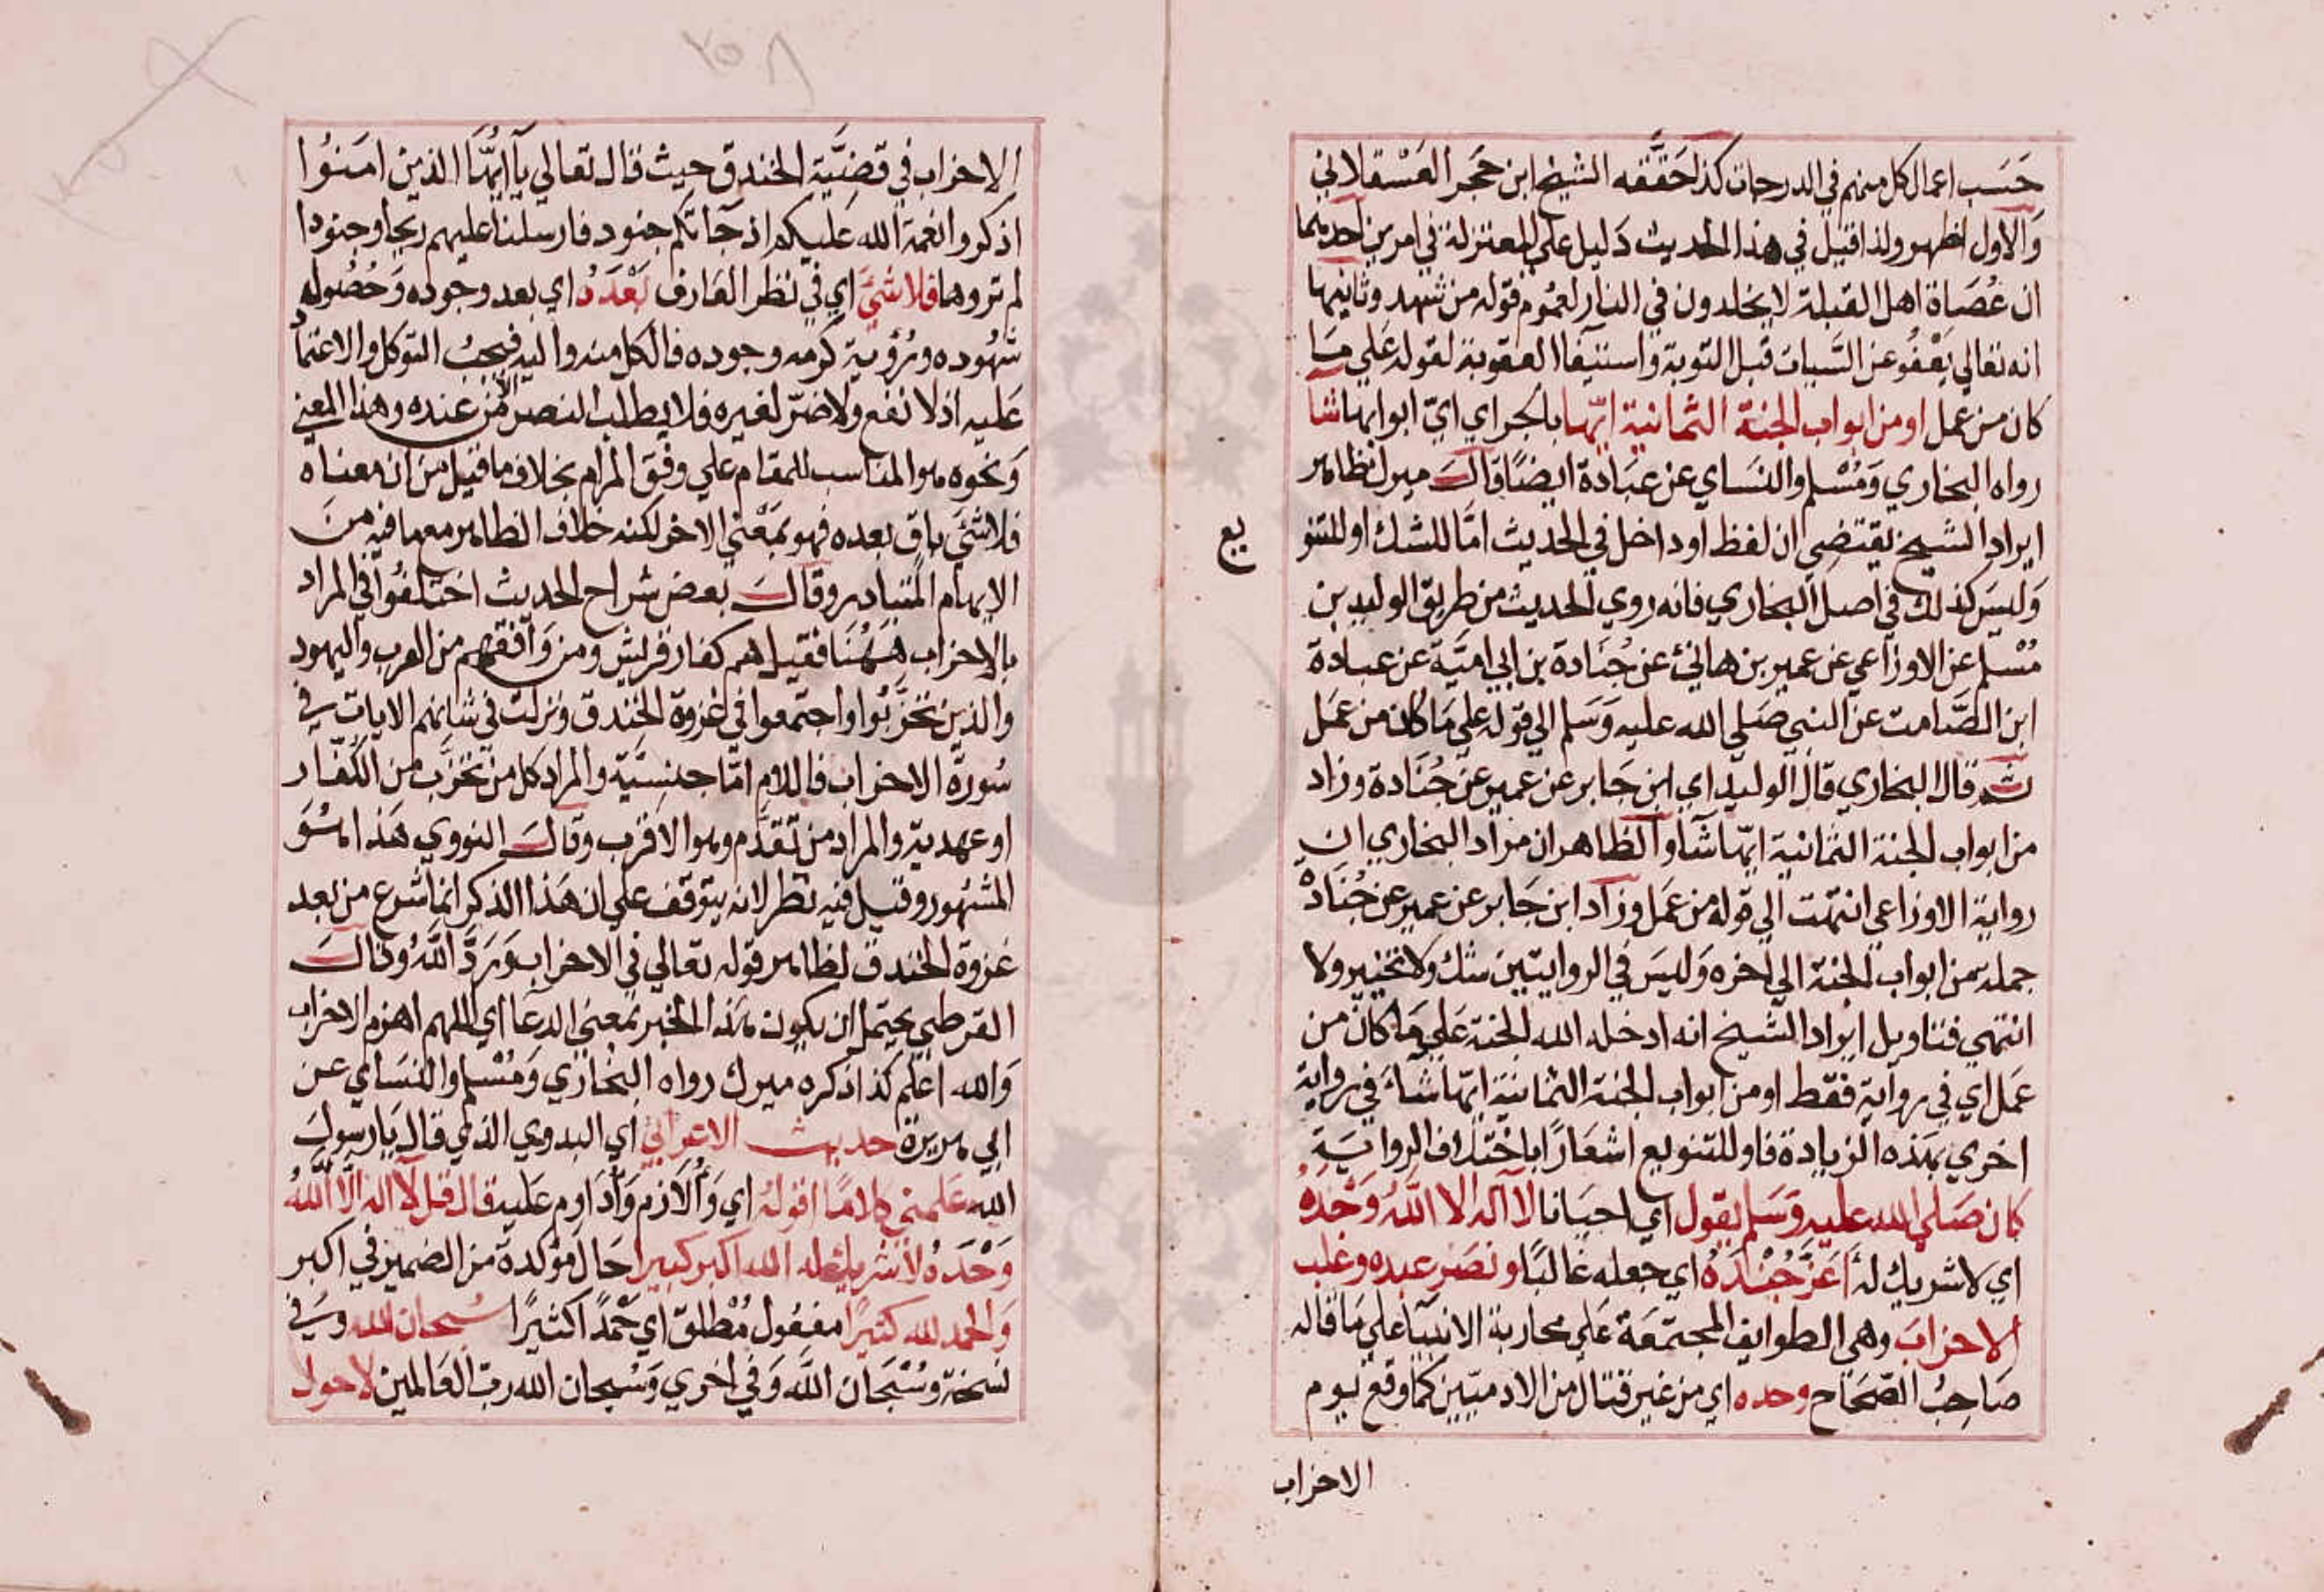 حَسَب اعمال كل منهم في الدرجات كذا حَقَّقه الشيخ ابن حَجَر العَسْقلاني
وَالاول اظهر ولذا قيل في هذا الحديث دَليل على المعتزلة في امرين احدهما
ان عُصَاة اهل القبلة لا يخلدون في النار لعمُوم قوله من شهد وثانيهما
انه تعالي يَعْفُو عن السَّيات قبل التوبة واستيفا العقوبة لقوله عَلي مَا
كان من عمل او من ابواب الجنة الثمانية ايّها بالجر اي ايّ ابوابها شا
رواه البخاري وَمُسْلم والنسَاي عن عبَادة ايضًا قالَ ميرك ظاهر
ايراد الشيخ يقتضِي ان لفظ او داخل في الحديث امّا للشك او للتنو
يع
وَليسَ كذلك في اصل البخاري فانه روي الحديث من طريق الوليد بن
مُسْلم عن الاوزاعي عن عمير بن هانئ عن جُنَادة بن ابي اميَّة عن عبادة
ابن الصَّامت عن النبي صَلي الله عليه وَسَلم الي قوله علي مَا كان من عمَل
ثم قال البخاري قال الوليد اي ابن جَابر عن عمير عن جُنَادة وزاد
من ابواب الجنة الثمانية ايّها شآ والظاهر ان مراد البخاري ان
رواية الاوزاعي انتهت الي قوله من عمَل وزاد ابن جَابر عن عمير عن جُنَادة
جملة من ابواب الجنة الي اخره وَليسَ في الروايتين شك ولا تخيير ولا
انتهي فتناويل ايراد الشيخ انه ادخله الله الجنة عَلي مَا كان من
عَمل اي في رواية فقط او من ابواب الجنة الثمانية ايّها شآءَ في رواية
اخري بهَذه الزيادة فاو للتنويع اشعَارًا باختلاف الروايَة
كان صَلي الله عليه وَسَلم يقول اي احيَانا لا اله الا اللهُ وَحْدَهُ
اي لا شريك لهُ اَعَزَّ جُنْدَهُ اي جعله غالبًا ونصَر عبده وغلب
الاحزابَ وهي الطوايف المجتمَعة عَلي محاربة الانبيآ علي مَا قاله
صَاحِبُ الصّحَاح وحده اي من غير قتال من الادميّين كما وقع يوم
الاحزاب
الاحزاب في قضيَّة الخندق حيث قال تعالي يآ ايُّها الذين امَنوُا
اذكروا نعمة الله عَليكم اذ جآتكم جنود فارسلنا عليهم ريحًا وجنودا
لم تروها فلا شيَّ اي في نظر العَارف بَعْدَهُ اي بعد وجوده وَحُصُوله
شهُوده ورُؤية كرمه وجوده فالكل منه واليه فيجبُ التوكل والاعتماد
عَليه اذ لا نفع ولا ضرّ لغيره فلا يطلب النصر الا من عنده وهذا المعني
وَنحوه هوا لمناسب للمقام علي وفق المرام بخلاف ما قيل من ان معناه
فلا شيَ باق بعده فهو بمَعْني الاخر لكنه خلاف الظاهر مع ما فيه من
الايهام المتبادر وقالَ بعض شراح الحديث اختلفُوا في المراد
بالاحزاب هَهُنا فقيل هم كفار قريش ومن وَافقهم من العرب واليهود
والذين تحزَّبُوا واجتمعوا في غزوة الخندق ونزلت في شانهم الايات في
سُورة الاحزاب فاللام امّا جنسِيَّة والمراد كل من تحزَّب من الكُفّار
او عهدية والمراد من تقدَّم وهو الاقرب وقالَ النووي هَذا هُوَ
المشهور وقيل فيه نظر لانه يتوقف علي ان هَذا الذكر انما شرع من بعد
غزوة الخندق لظاهر قوله تعالي في الاحزاب وَرَدَّ اللهُ وقالَ
القرطبي يحتمل ان يكون هذا الخبر بمعني الدعا اي اللهم اهزم الاحزاب
وَالله اعلم كذا ذكره ميرك رواه البخاري وَمُسْلم والنسَاي عن
ابي هريرة حديث الاعرابي اي البدوي الذي قال يَا رسولَ
الله عَلمني كلامًا اقولهُ اي وَأُلازم وَأُدَاوم عَليه قال قل لا اله الا اللهُ
وَحْدَهُ لا شريك له الله اكبر كبيرا حَال مؤكدة من الضمير في اكبر
وَالحمد لله كثيرًا مفعُول مُطلق اي حَمْدًا كثيرًا سُبحان الله وَفي
نسخة وسُبْحَان اللهَ وَفي اخري وَسُبحان الله ربّ العَالمين لا حول